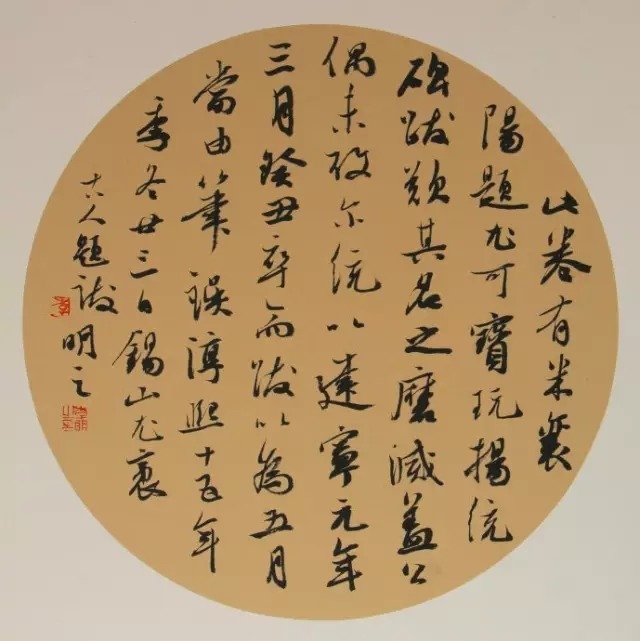 此卷有米襄
陽題尤可寶玩楊統
碑跋歎其名之磨滅蓋公
偶未攷尔統以建寧元年
三月癸丑卒而跋以為五月
當由筆誤淳熙十五年
季冬廿三日錫山尤袤
古人題跋 明之